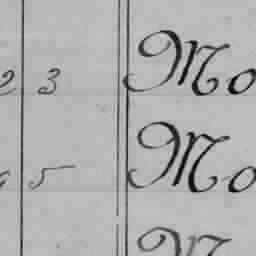 2 3 Mo
5 Mo